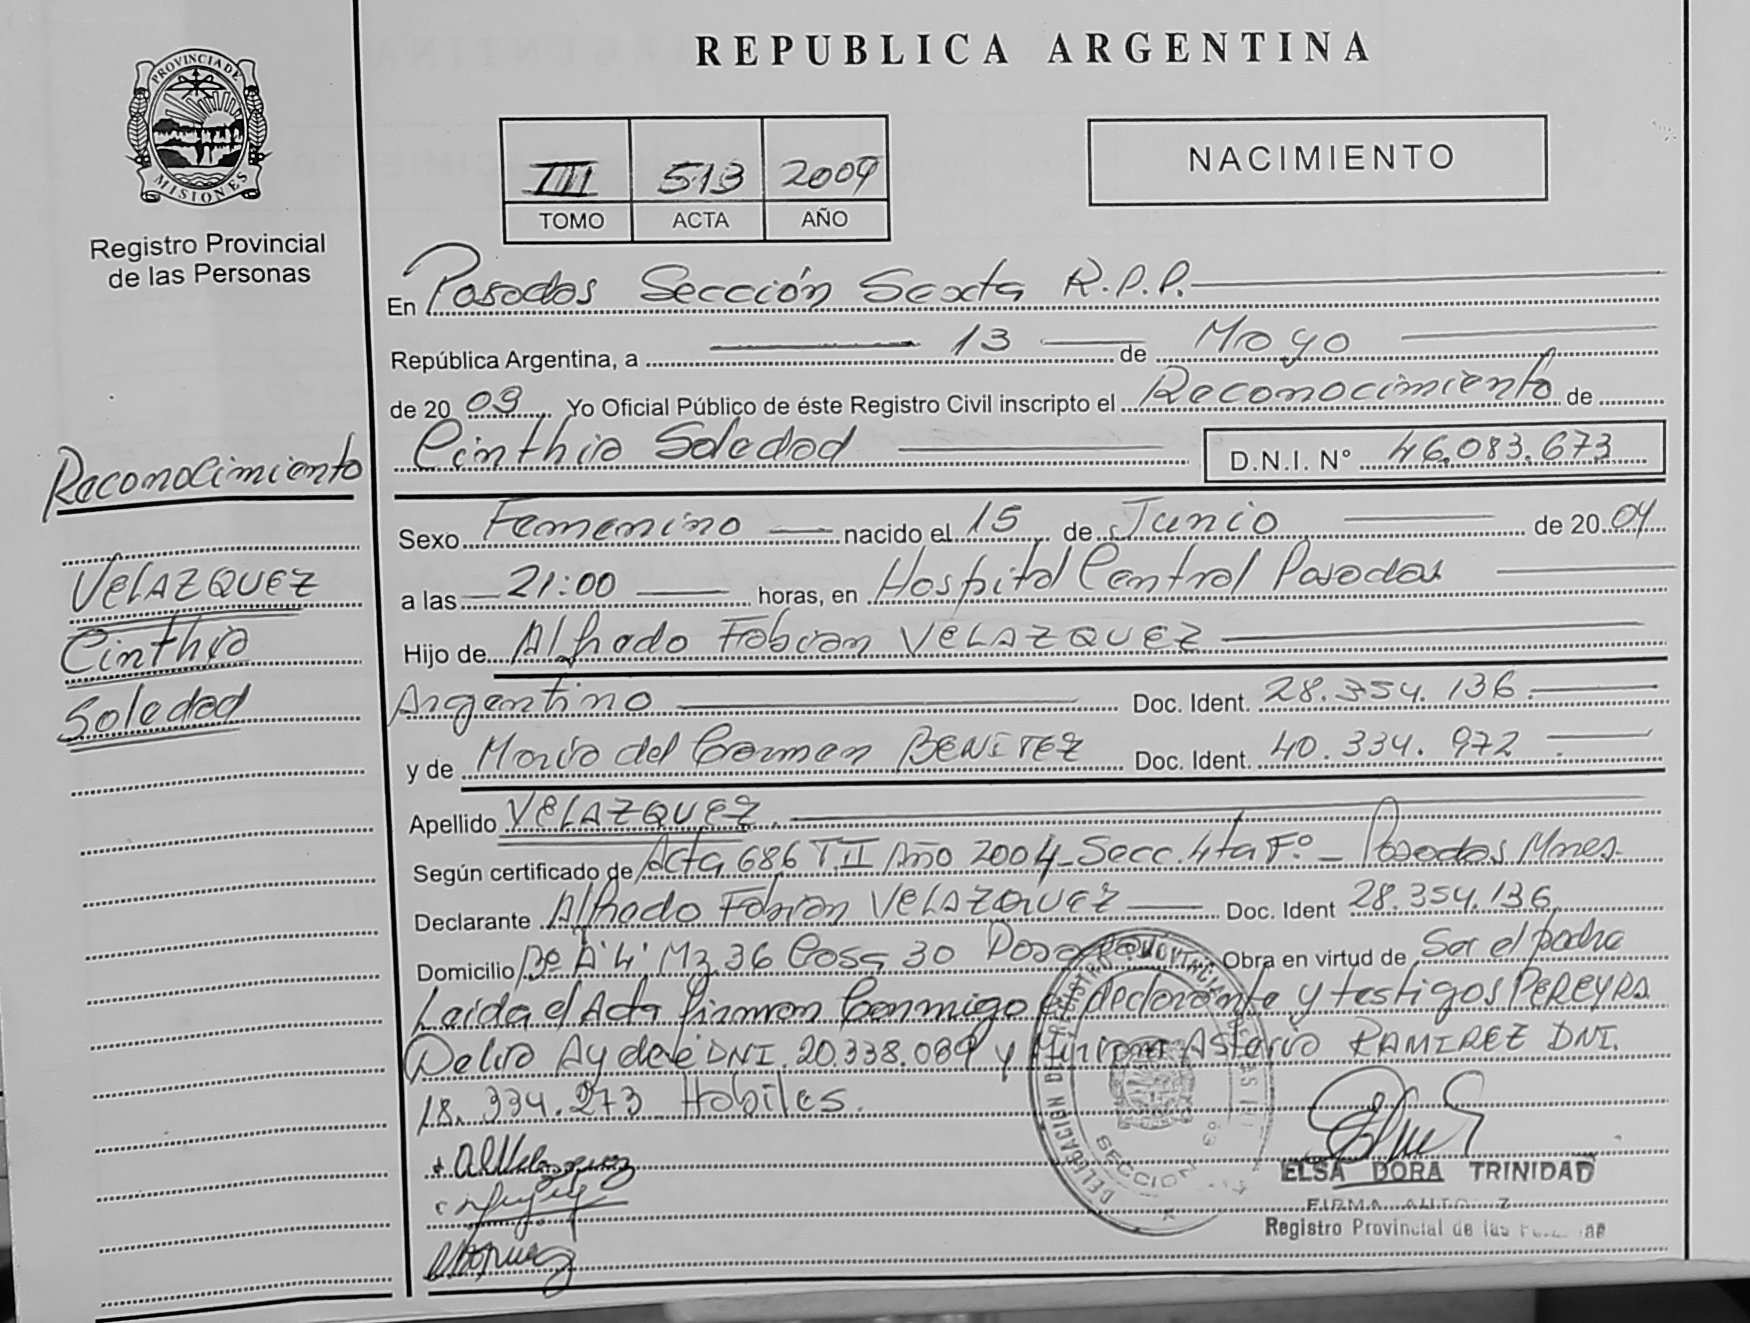 REPUBLICA ARGENTINA
PROVINCIA DE
MISIONES
Registro Provincial
de las Personas
III 513 2009
TOMO ACTA AÑO
NACIMIENTO
En Posadas Sección Sexta R.P.P.
República Argentina, a 13 de Mayo
de 20 09 Yo Oficial Público de éste Registro Civil inscripto el Reconocimiento de
Cinthia Soledad D.N.I. N° 46.083.673
Sexo Femenino nacido el 15 de Junio de 20 04
a las 21:00 horas, en Hospital Central Posadas
Hijo de Alfredo Fabian VELAZQUEZ
Argentino Doc. Ident. 28.354.136
y de María del Carmen BENITEZ Doc. Ident. 40.334.972
Apellido VELAZQUEZ
Según certificado de Acta 686 T.II Año 2004 - Secc. 4ta F° - Posadas Mnes.
Declarante Alfredo Fabian VELAZQUEZ Doc. Ident 28.354.136
Domicilio B° A'4' Mz 36 Casa 30 Obra en virtud de Ser el padre
Leída el Acta firman conmigo el declarante y testigos PEREYRA
Delia Aydeé DNI. 20.338.089 y Miriam RAMIREZ DNI.
18.334.273 Habiles.
Reconocimiento
VELAZQUEZ
Cinthia
Soledad
SECCION
ELSA DORA TRINIDAD
FIRMA
Registro Provincial de las